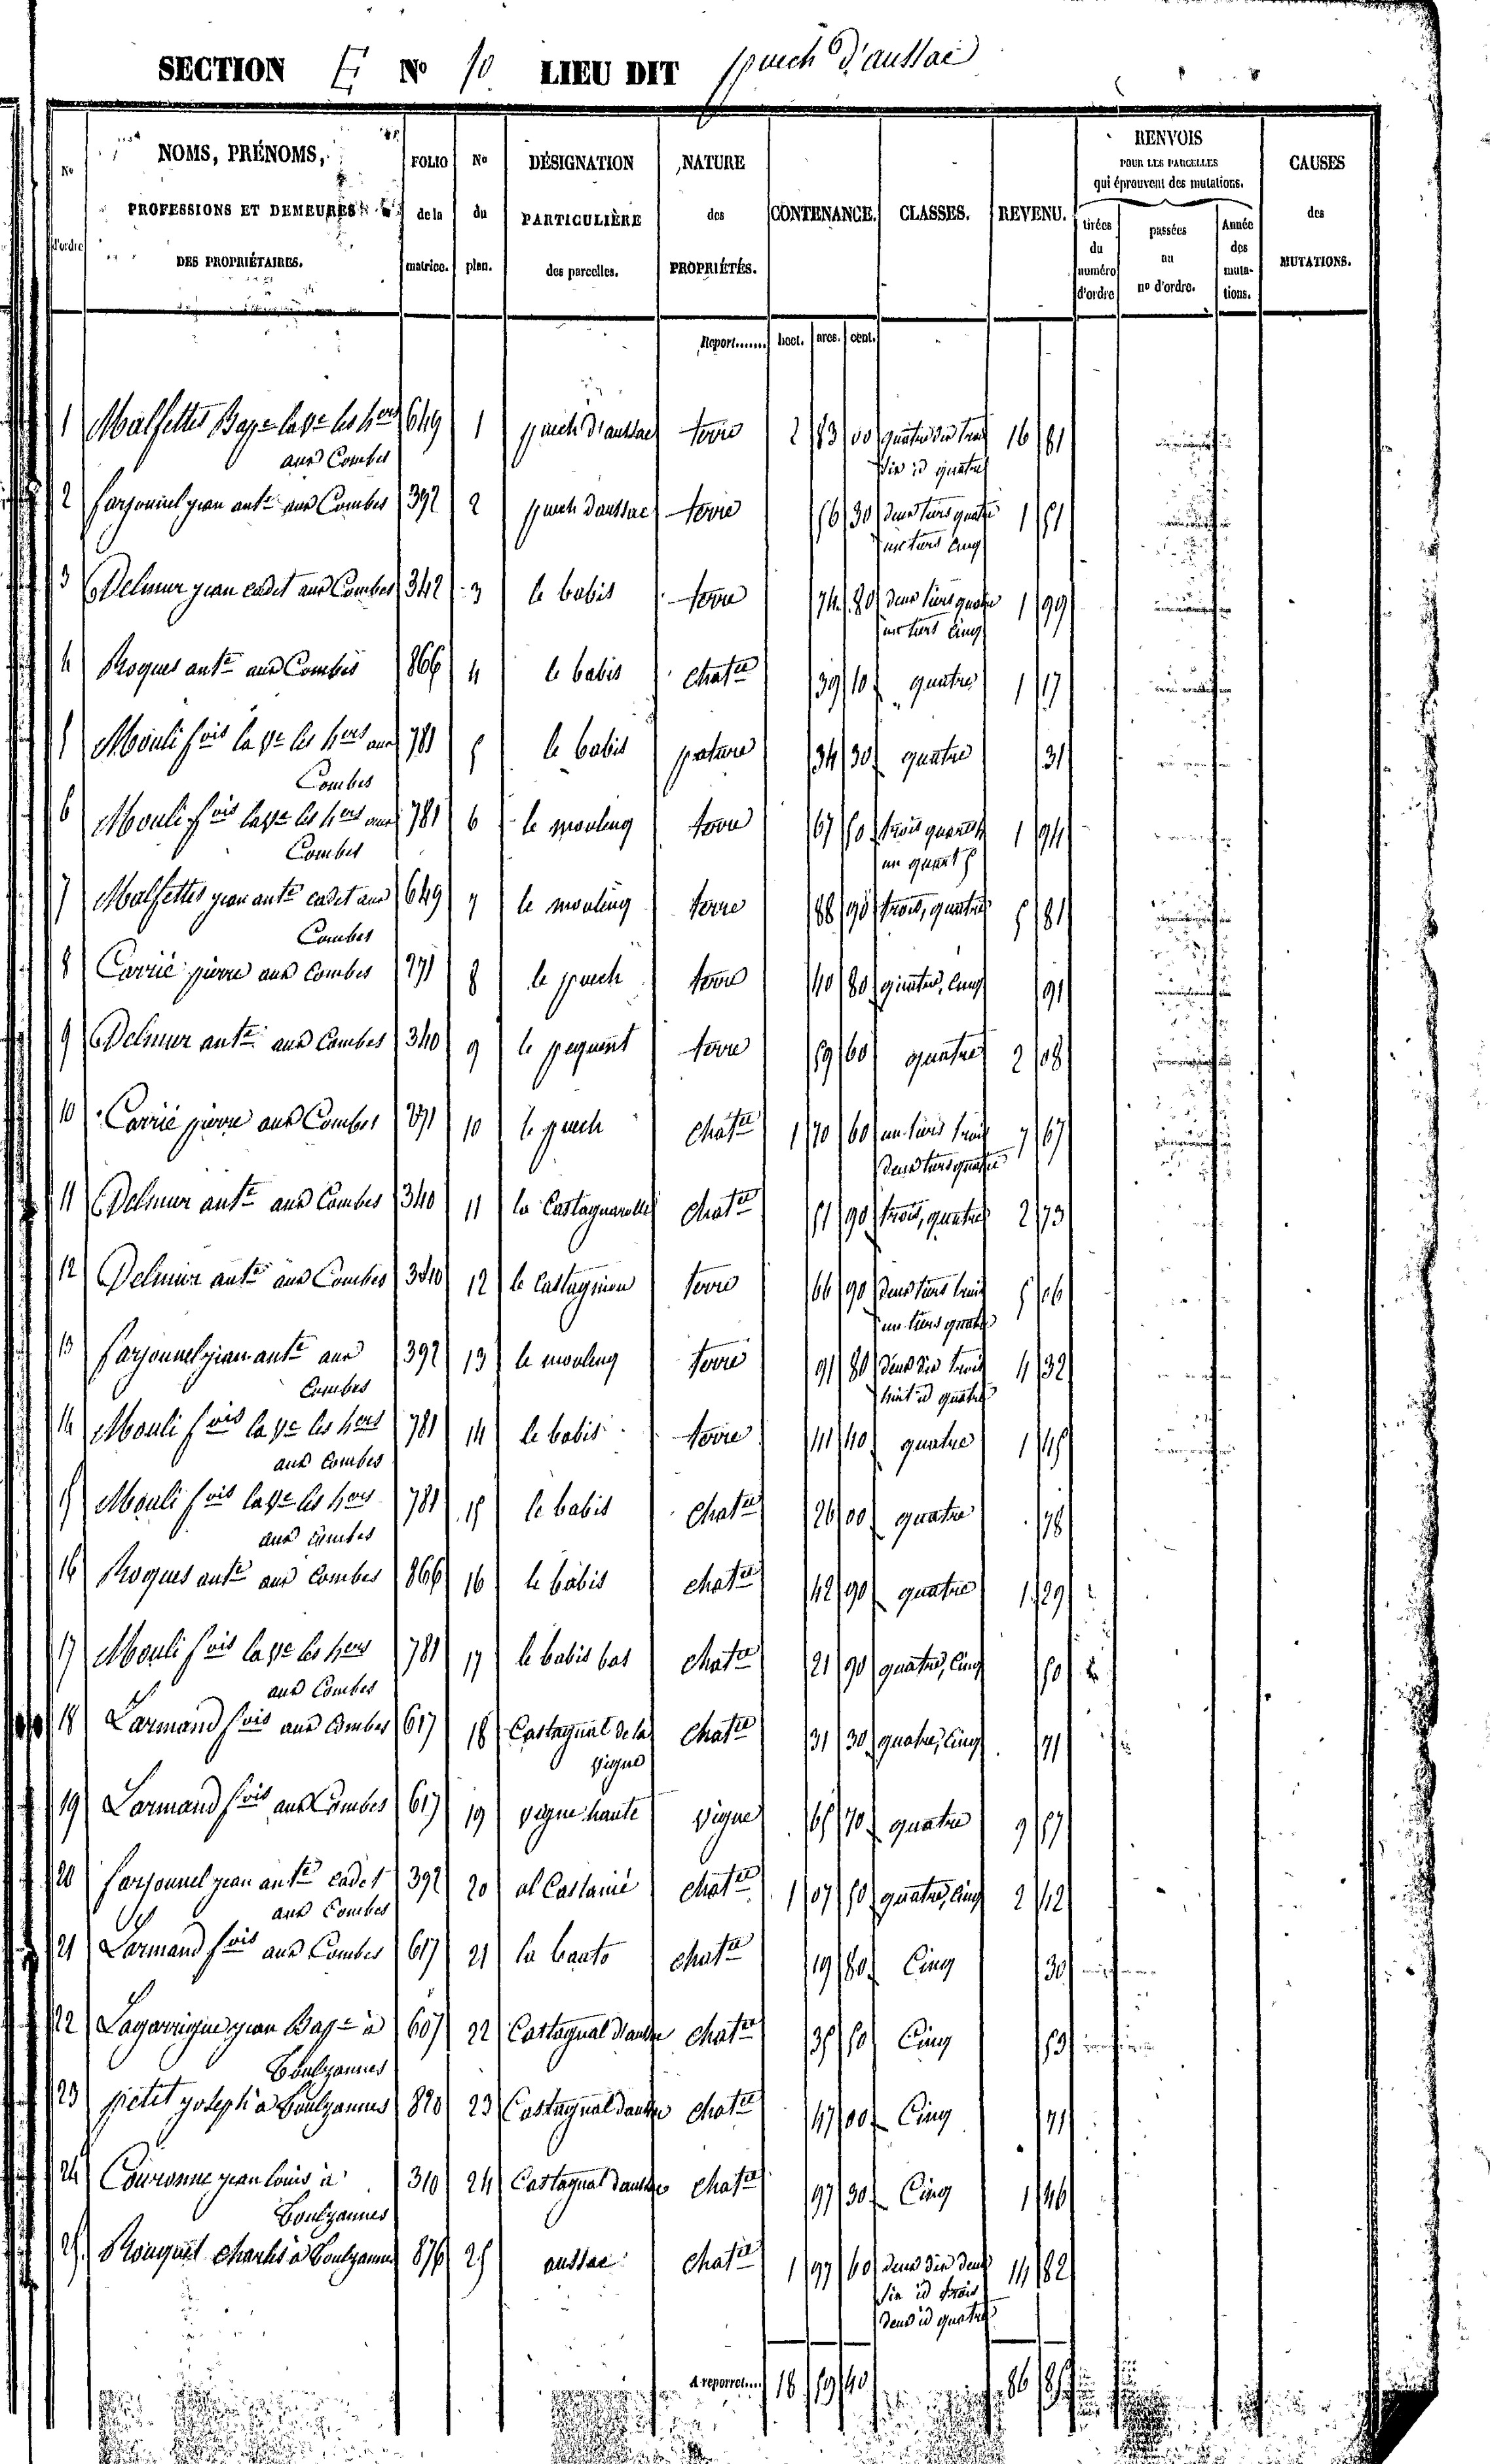 SECTION E No 10 LIEU DIT puech d'aussac
No d'ordre
NOMS, PRÉNOMS,
PROFESSIONS ET DEMEURES
DES PROPRIÉTAIRES.
FOLIO de la matrice.
No du plan.
DÉSIGNATION PARTICULIÈRE des parcelles.
NATURE des PROPRIÉTÉS.
CONTENANCE.
CLASSES.
REVENU.
RENVOIS
POUR LES PARCELLES
qui éprouvent des mutations.
tirées du numéro d'ordre
passées au no d'ordre.
Année des muta-tions.
CAUSES des MUTATIONS.
Report....... hect. ares. cent.
1 Malfettes Bapte la ve les hers 649 1 puech d'aussac terre 2 83 00 quatre dix trois 16 81
aux Combes six id quatre
2 farjounel jean ante aux Combes 392 2 puech d'aussac terre 56 30 deux tiers quatre 1 51
un tiers cinq
3 Delmur jean cadet aux Combes 342 3 le babis terre 74 80 deux tiers quatre 1 99
un tiers cinq
4 Roques ante aux Combes 866 4 le babis chatre 39 10 quatre 1 17
5 Mouli fois la ve les hers aux 781 5 le babis pature 34 30 quatre 31
Combes
6 Mouli fois la ve les hers aux 781 6 le mouleng terre 67 50 trois quarts 4 1 94
Combes un quart 5
7 Malfettes jean ante cadet aux 649 7 le mouleng terre 88 90 trois, quatre 5 81
Combes
8 Carrié pierre aux Combes 271 8 le puech terre 40 80 quatre, cinq 91
9 Delmur ante aux Combes 340 9 le pequent terre 59 60 quatre 2 08
10 Carrié pierre aux Combes 271 10 le puech chatre 1 70 60 un tiers trois 7 67
deux tiers quatre
11 Delmur ante aux Combes 340 11 la Castagnarelle chatre 51 90 trois, quatre 2 73
12 Delmur ante aux Combes 340 12 le Castagnion terre 66 90 deux tiers trois 5 06
un tiers quatre
13 farjounel jean ante aux 392 13 le mouleng terre 91 80 deux dix trois 4 32
Combes huit id quatre
14 Mouli fois la ve les hers 781 14 le babis terre 41 40 quatre 1 45
aux Combes
15 Mouli fois la ve les hers 781 15 le babis chatre 26 00 quatre 78
aux Combes
16 Roques ante aux Combes 866 16 le babis chatre 42 90 quatre 1 29
17 Mouli fois la ve les hers 781 17 le babis bas chatre 21 90 quatre, cinq 50
aux Combes
18 Larmand fois aux Combes 617 18 Castagnal de la chatre 31 30 quatre, cinq 71
vigne
19 Larmand fois aux Combes 617 19 vigne haute vigne 65 70 quatre 9 57
20 farjounel jean ante cadet 392 20 al Castanié chatre 1 07 50 quatre, cinq 2 42
aux Combes
21 Larmand fois aux Combes 617 21 la bauto chatre 19 80 Cinq 30
22 Lagarrigue jean Bapte à 607 22 Castagnal chatre 35 50 Cinq 53
Boulzannes
23 petit joseph à Boulzannes 820 23 Castagnal chatre 47 00 Cinq 71
24 Couronne jean louis à 310 24 Castagnal chatre 97 30 Cinq 1 46
Boulzannes
25 Rouquet charles à Boulzannes 876 25 aussac chatre 1 97 60 deux dix deux 14 82
six id trois
deux id quatre
A reporter.... 18 59 40 86 85